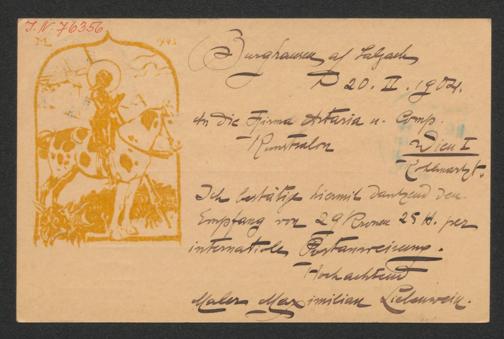 J.N. 76356
M 1903
Burghausen a/ Salzach
D 20. II. 1904.
An die Firma Artaria u. Comp.
Kunstsalon Wien I
Kohlmarkt.
Ich bestätige hiermit dankend den
Empfang von 29 Kronen 25 H. per
internationale Postanweisung.
Hochachtend
Maler Maximilian Liebenwein.